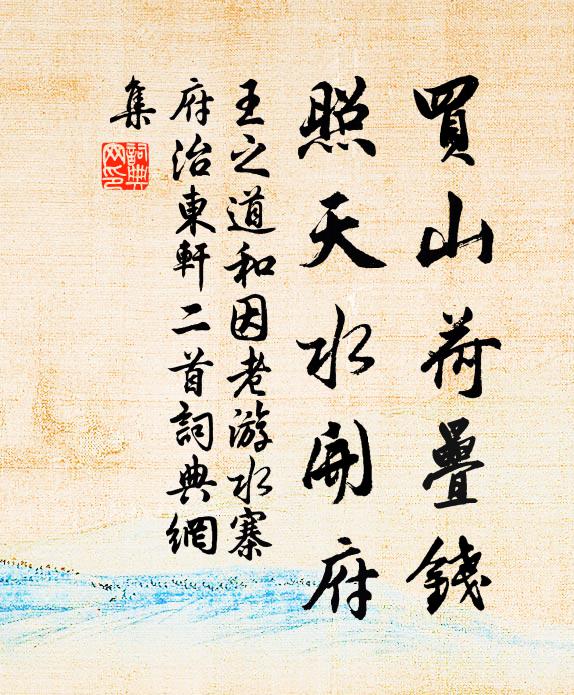 買山荷疊錢
照天水開府
王之道和因老游水寨
府治東軒二首詞典網
集
詞典網印